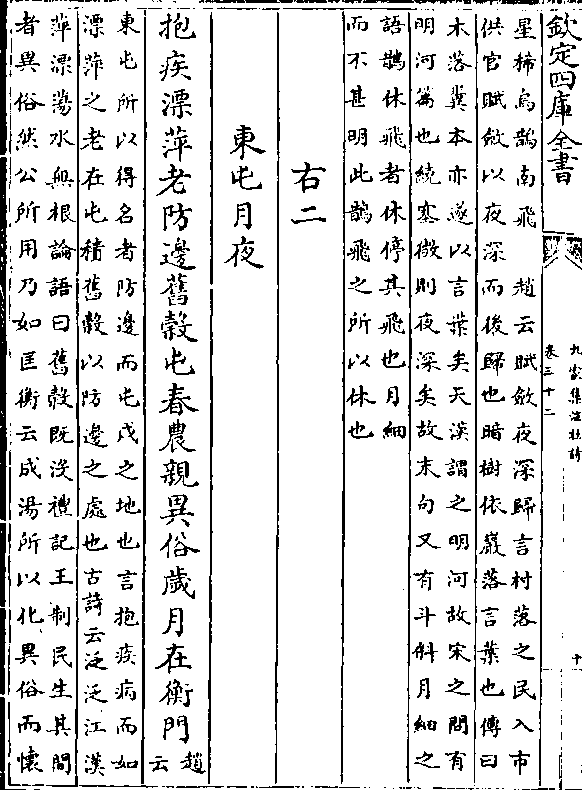 欽定四庫全書
九家集注杜詩
卷三十二
十
星稀烏鵲南飛　趙云賦斂夜深歸言村落之民入市
供官賦斂以夜深而後歸也暗樹依巖落言葉也傳曰
木落冀本亦遂以言葉矣天漢謂之明河故宋之問有
明河篇也繞塞微則夜深矣故末句又有斗斜月細之
語鵲休飛者休停其飛也月細
而不甚明此鵲飛之所以休也
右二
東屯月夜
抱疾漂萍老防邊舊穀屯春農親異俗歲月在衡門
趙
云
東屯所以得名者防邊而屯戍之地也言抱疾病而如
漂萍之老在屯積舊穀以防邊之處也古詩云泛泛江漢
萍漂蕩水無根論語曰舊穀既沒禮記王制民生其間
者異俗然公所用乃如匡衡云成湯所以化異俗而懷